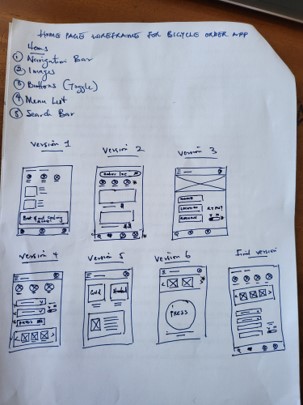 HOME PAGE WIREFRAME FOR BICYCLE ORDER APP
Items
① Navigation Bar
② Images
③ Buttons (Toggle)
④ Menu List
⑤ Search Bar
Version 1
Version 2
Version 3
Version 4
Version 5
Version 6
PRESS
Final version